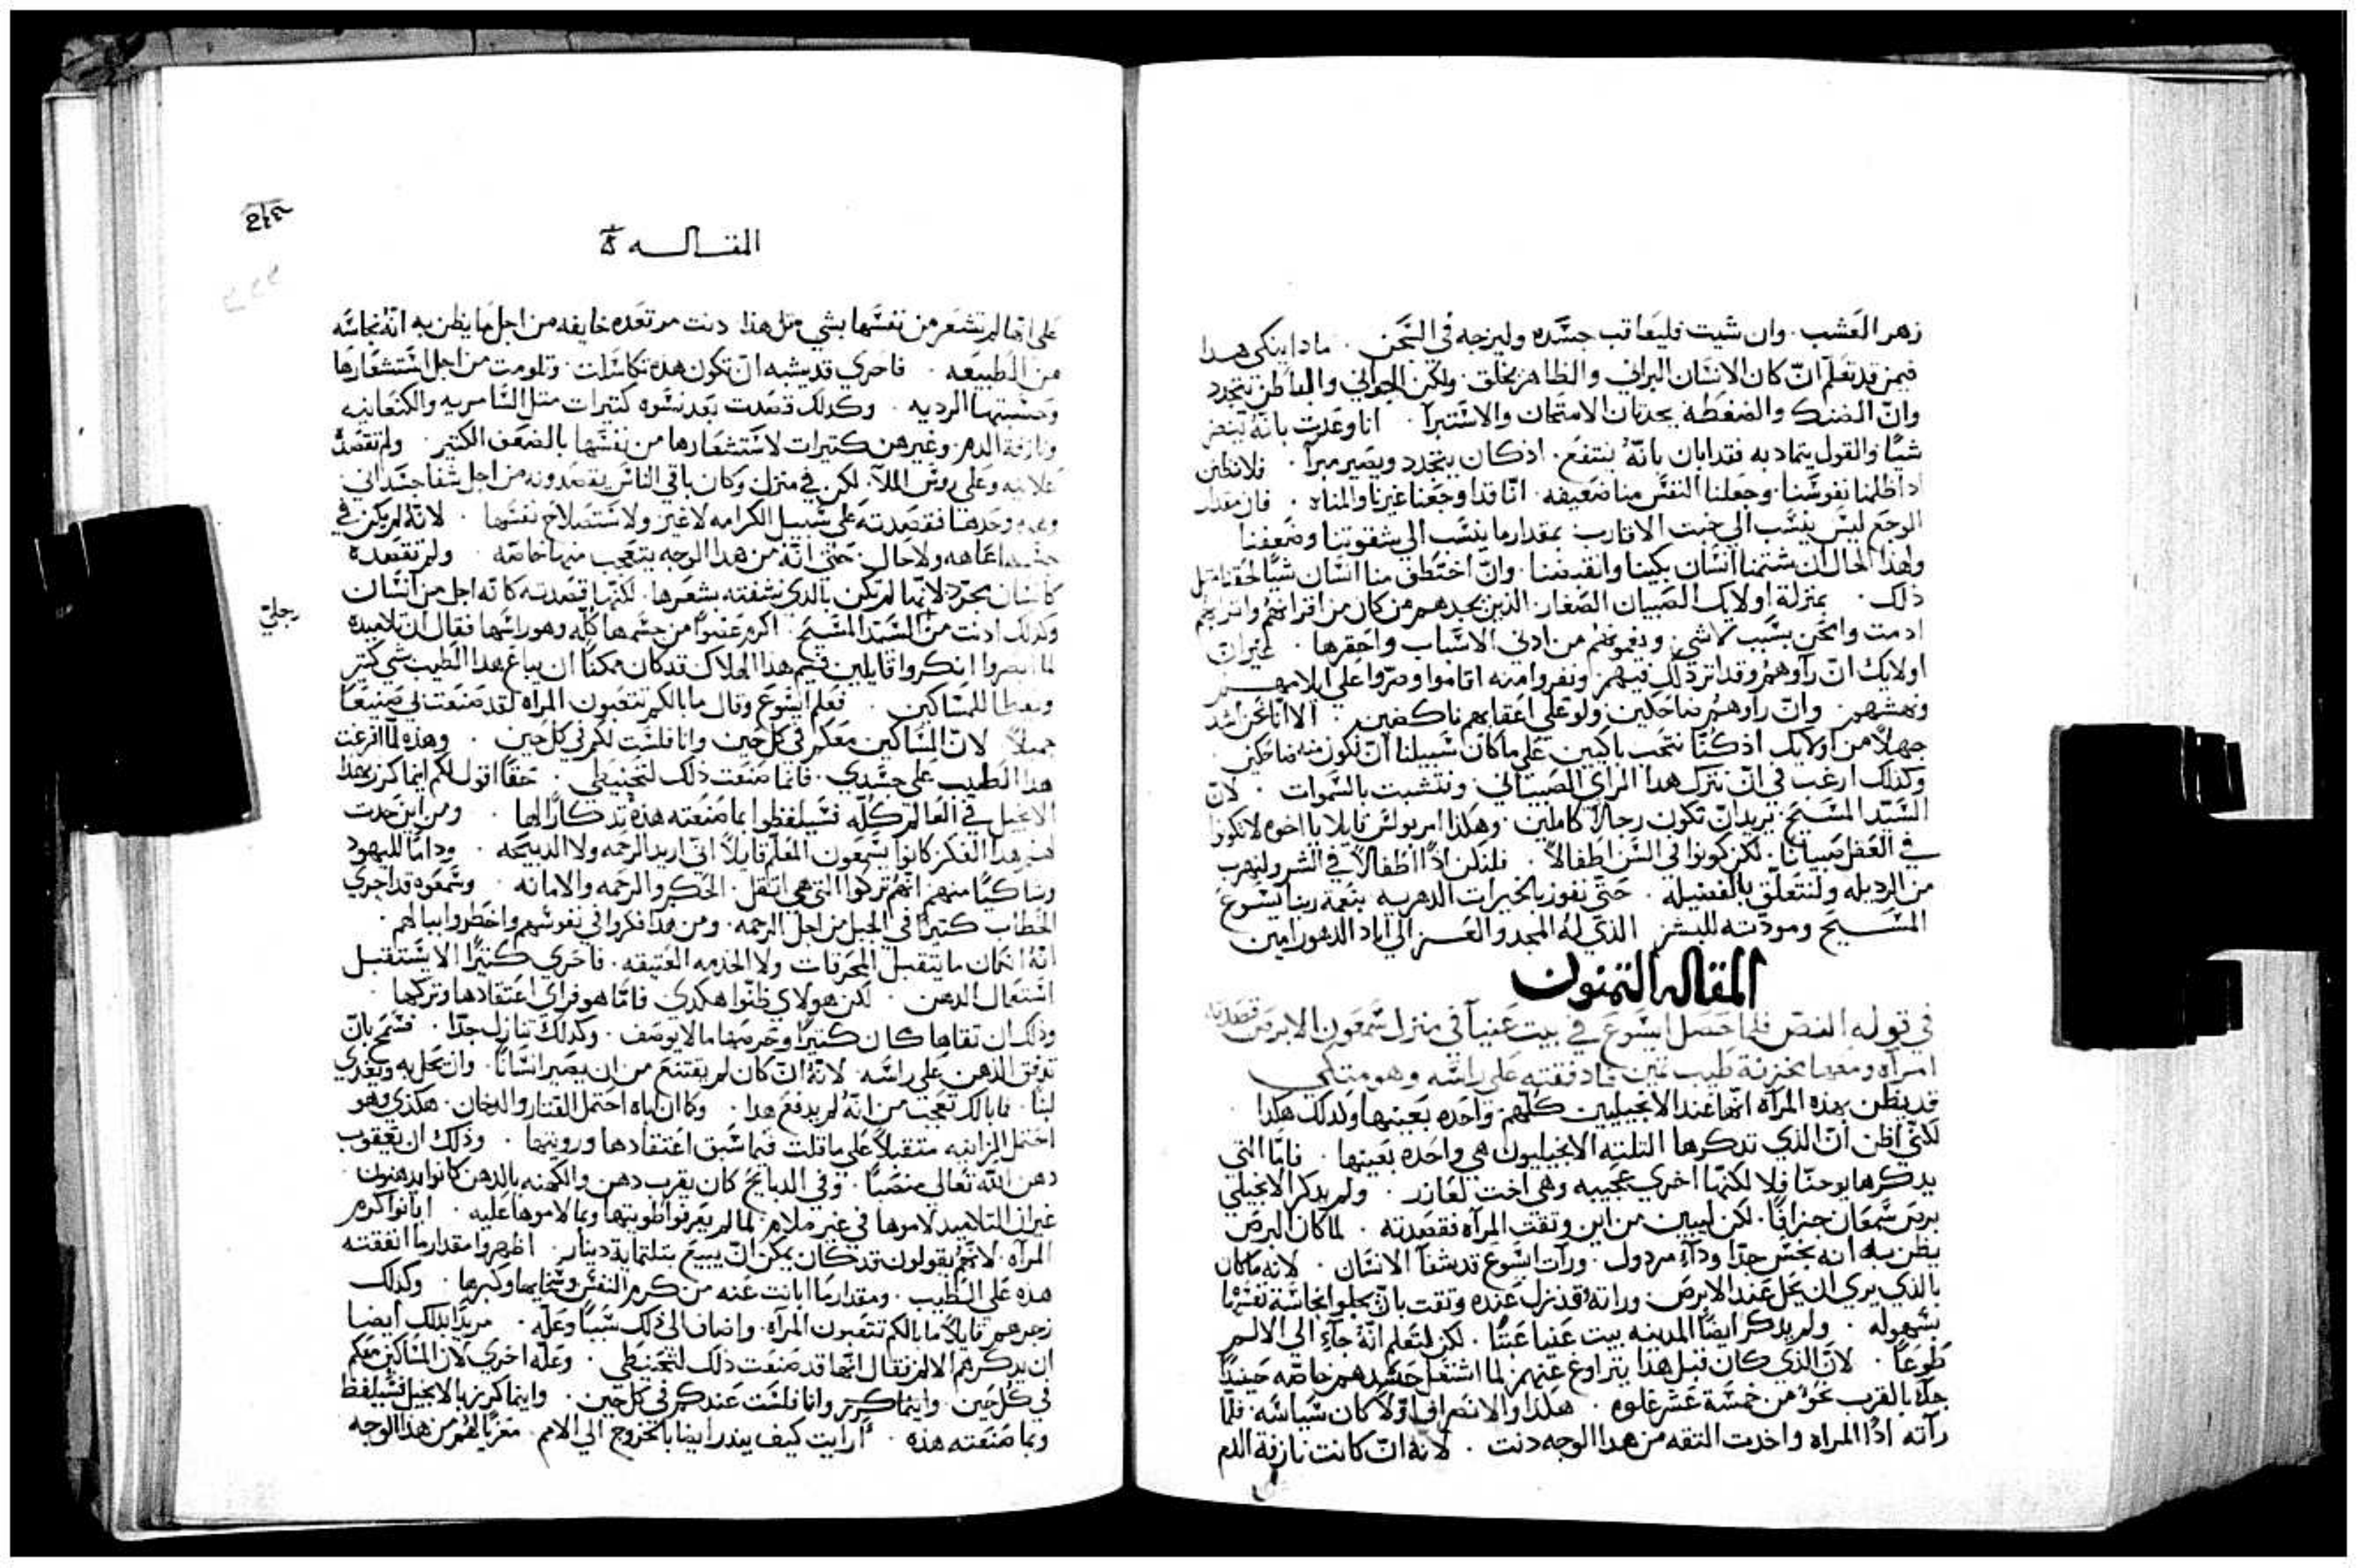 زهر العَشب . وان شيت فليعَاقب جسَّده وليزجه في السَّجن . مادا ينكي هدا
فيمن قد تعَلم انّ كان الانسَان البراني والظاهر يخلق . ولكن الجواني والباطن يتجدد
وانّ الضنك والضغطه يحدثان الامتحان والاسَتبرا . انا وعَدت بانهُ يبغض
شيًا والقول يتماد به فقد ابان بانّهُ ينتفع . اذ كان يتجدد ويصَير مبرا . فلا نظن
اداظلمنا نفوسَنا . وجعَلنا النفسَ منا ضعَيفه . انّا قد اوجعَنا غيرنا والمناه . فان مقدار
الوجعَ ليسَ ينسَب الي خبت الاقارب بمقدار ما ينسَب الي شقوتنا وضعَفنا
ولهذا الحال ان شتمنا انسَان بكينا وانقبضنا . وانّ اختطف منا انسَان شيًا لحقنا مثل
ذلك . بمنزلة اولايك الصَبيان الصَغار . الذين يجدهم من كان من اقرانهم واترابهم
ادمت وامجَن بسَبب لا شي . ويغموهم من ادني الاسَباب واحقرها . غير انّ
اولايك انّ راوهم وقد اتر ذلك فيهم . ونفروا منه اقاموا وصَرّوا علي ايلامهم
ونهشهم . وانّ راوهم ضاحَكين ولو علي اعَقابهم ناكصَين . الا انّا نحَن اشد
جهلاً من اولايك اذ كنّا ننتحَب باكيين علي ما كان سَبيلنا انّ نكون منه ضاحَكين
وكدلك ارغب في انّ نترك هدا الراي الصَبياني ونتشبت بالسَموات . لانّ
السَيّد المسَيح . يريد انّ نكون رجالاً كاملين . وهكدا امر بولسَ قايلا يا اخوه لا تكونوا
في العَقل صَبيانًا . لكن كونوا في السَن اطفالاً . فلنكن اذًا اطفالاً في الشر ولنهرب
من الرديله ولنتعَلّق بالفضيله . حَتّي نفوز بالخيرات الدهريه بنعَمة ربنا يسَوع
المسَيح ومودّته للبشر الذي لهُ المجد والعَز الي اباد الدهور امين
المقاله التمنون
في قوله النصّ فلما حَصَل ايسَوع في بيت عَنيا في منزل سَمعَون الابرصَ قصَدته
امرآه ومعَها مخزنة طيب تمين فادفقته علي راسَه وهو متكي
قد يظن بهذه المرآه انّها عَند الانجيليين كلّهم واحَده بعَينها ولدلك هكدا
لكنّي اظن انّ الذي تدكرها التلتة الانجيليون هي واحَده بعَينها . فامّا التي
يدكرها يوحنّا فلا لكنّها اخري عَجيبيه وهي اخت لعَازر . ولم يدكر الانجيلي
برصَ سَمعَان جزافًا . لكن ليبين من اين وتقت المرآه فقصَدته . لما كان البرصَ
يظن به انه نجسَ جدّا ودآء مردول . ورآت ايسَوع قد شفا الانسَان . لانه ما كان
بالذي يري ان يحَل عَند الابرصَ . وراتهُ قد نزل عَنده وتقت بانّ يجلوا نجاسَة نفسَها
بسَهوله . ولم يدكر ايضًا المدينه بيت عَنيا عَبتًا . لكن لتعَلم انّهُ جآء الي الالم
طوعًا . لانّ الذي كان قبل هذا يتراوغ عَنهم . لما اشتعَل حَسَدهم خاصّه حَينيدًا
جآء بالقرب نحَوُ من خمسَة عَشر غلوه . هكدا والانصَراف اوّلاً كان سَياسَه . فلمّا
رآته ادًا المراه واخدت التقه من هدا الوجه دنت . لانه انّ كانت نازفة الدم
المقاله
علي انّها لم تشعَر من نفسَها بشي متل هذا دنت مرتعَده خايفه من اجل ما يظن به انّهُ نجاسَه
من الطبيعَه . فاحَري قد يشبه انّ تكون هده تكاسَلت . وتلومت من اجل اسَتشعَارها
وحَشتها الرديه . وكدلك قصَدت بعَد نسَوه كتيرات متل السَامريه والكنعَانيه
ونازفة الدم . وغيرهن كتيرات لاسَتشعَارها من نفسَها بالضعَف الكتير . ولم تقصَدهُ
عَلانيه وعلي روسَ الملآ . لكن في منزل وكان باقي الناسَ يقصَدونه من اجل شفا جسَداني
وحَدها فقصَدته علي سَبيل الكرامه لاغير ولاسَتصَلاح نفسَها . لانّه لم يكن في
جسَدها عَاهه ولا حَال . حَتي انّهُ من هدا الوجه يتعَجب منها خاصّه . ولم تقصَده
كانسَان مجرّد لانّها لم تكن بالدي نشفته بشعَرها . لكنّها قصَدته كانه اجل من انسَان
رجليّ
وكدلك ادنت من السَيّد المسَيح . اكرم عَضوًا من جسَمها كلّه وهو راسَها فقال ان تلاميده
لما ابصَروا انكروا قايلين فيم هدا الهلاك قد كان ممكنًا ان يباع هدا الطيب بشي كتير
ويعَطا للمسَاكين . فعَلم ايسَوع وقال ما بالكم تتعَبون المراه لقد صَنعَت بي صَنيعًا
جميلاً . لانّ المسَاكين معَكم في كل حَين وانا فلسَت لكم في كل حَين . وهذه لما افرغت
هدا الطيب علي جسَدي . فانما صَنعَت ذلك لتحَنيطي . حَقًا اقول لكم اينما كرز بهذا
الانجيل في العَالم كلّه فسَيلفظوا بما صَنعَته هذه تدكارًا لها . ومن اين حَدت
لهم هدا الفكر كانوا يسَمعَون المعَلم قايلاً انّي اريد الرحَمه ولا الدبيحَه . وداما لليهود
وشاكيًا منهم انّهم تركوا التي هي اتقل . الحَكم والرحَمه والامانه . وسَمعَوه قد اجري
الخطاب كتيرًا في الجبل من اجل الرحمه . ومن هدا فكروا في نفوسَهم واخطروا ببالهم
انّهُ انكان ما يتقبل المحَرقات ولا الخدمه العَتيقه . فاحَري كتيرًا الا يسَتقبل
اسَتعَمال الدهن . لكن هولاي ظنّوا هكدي فامّا هو فراي اعَتقادها وتركها
وذلك ان تقاها كان كتيرًا وحَرصَها ما لا يوصَف . وكدلك تنازل جدّا . فسَمح بانّ
تدفق الدهن علي راسَه . لانهُ انّ كان لم يمتنع من ان يصَير انسَانًا . وان يحَل به ويغدي
لبنًا . فما بالك تعَجب من انّهُ لم يدفع هدا . وكما ان اباه احَتمل القتار والدخان . هكدي وهو
احَتمل الزانيه متقبلاً علي ما قلت فيما سَبق اعَتقادها ورويتها . وذلك ان يعَقوب
دهن اللّه تعَالي منصَبًا . وفي الدبايح كان يقرب دهن والكهنه بالدهن كانوا يدهنون
غير ان التلاميد لاموها في غير ملام . لما لم يعَرفوا طويتها وبما لاموها عَليه . ابانوا كرم
المرآه . لانّهم يقولون قد كان يمكن انّ يبيع بتلتماية دينار . اظهروا مقدار ما انفقته
هده علي الطيب . ومقدار ما ابانت عَنه من كرم النفسَ وسَخايها وكبرها . وكدلك
زجرهم قايلاً ما بالكم تتعَبون المرآه . واضاف الي ذلك سَببًا وعَلّه . مريدًا بدلك ايضا
ان يدكرهم الالم فقال انّها قد صَنعَت ذلك لتحَنيطي . وعَلّه اخري لان المسَاكين معَكم
في كل حَين وانا فلسَت عَندكم في كل حَين . واينما كرز بها الانجيل فسَيلفظ
وبما صَنعَته هذه . ارايت كيف يبدر ايضا بالخروج الي الامم . معَزيًا لهم من هدا الوجه